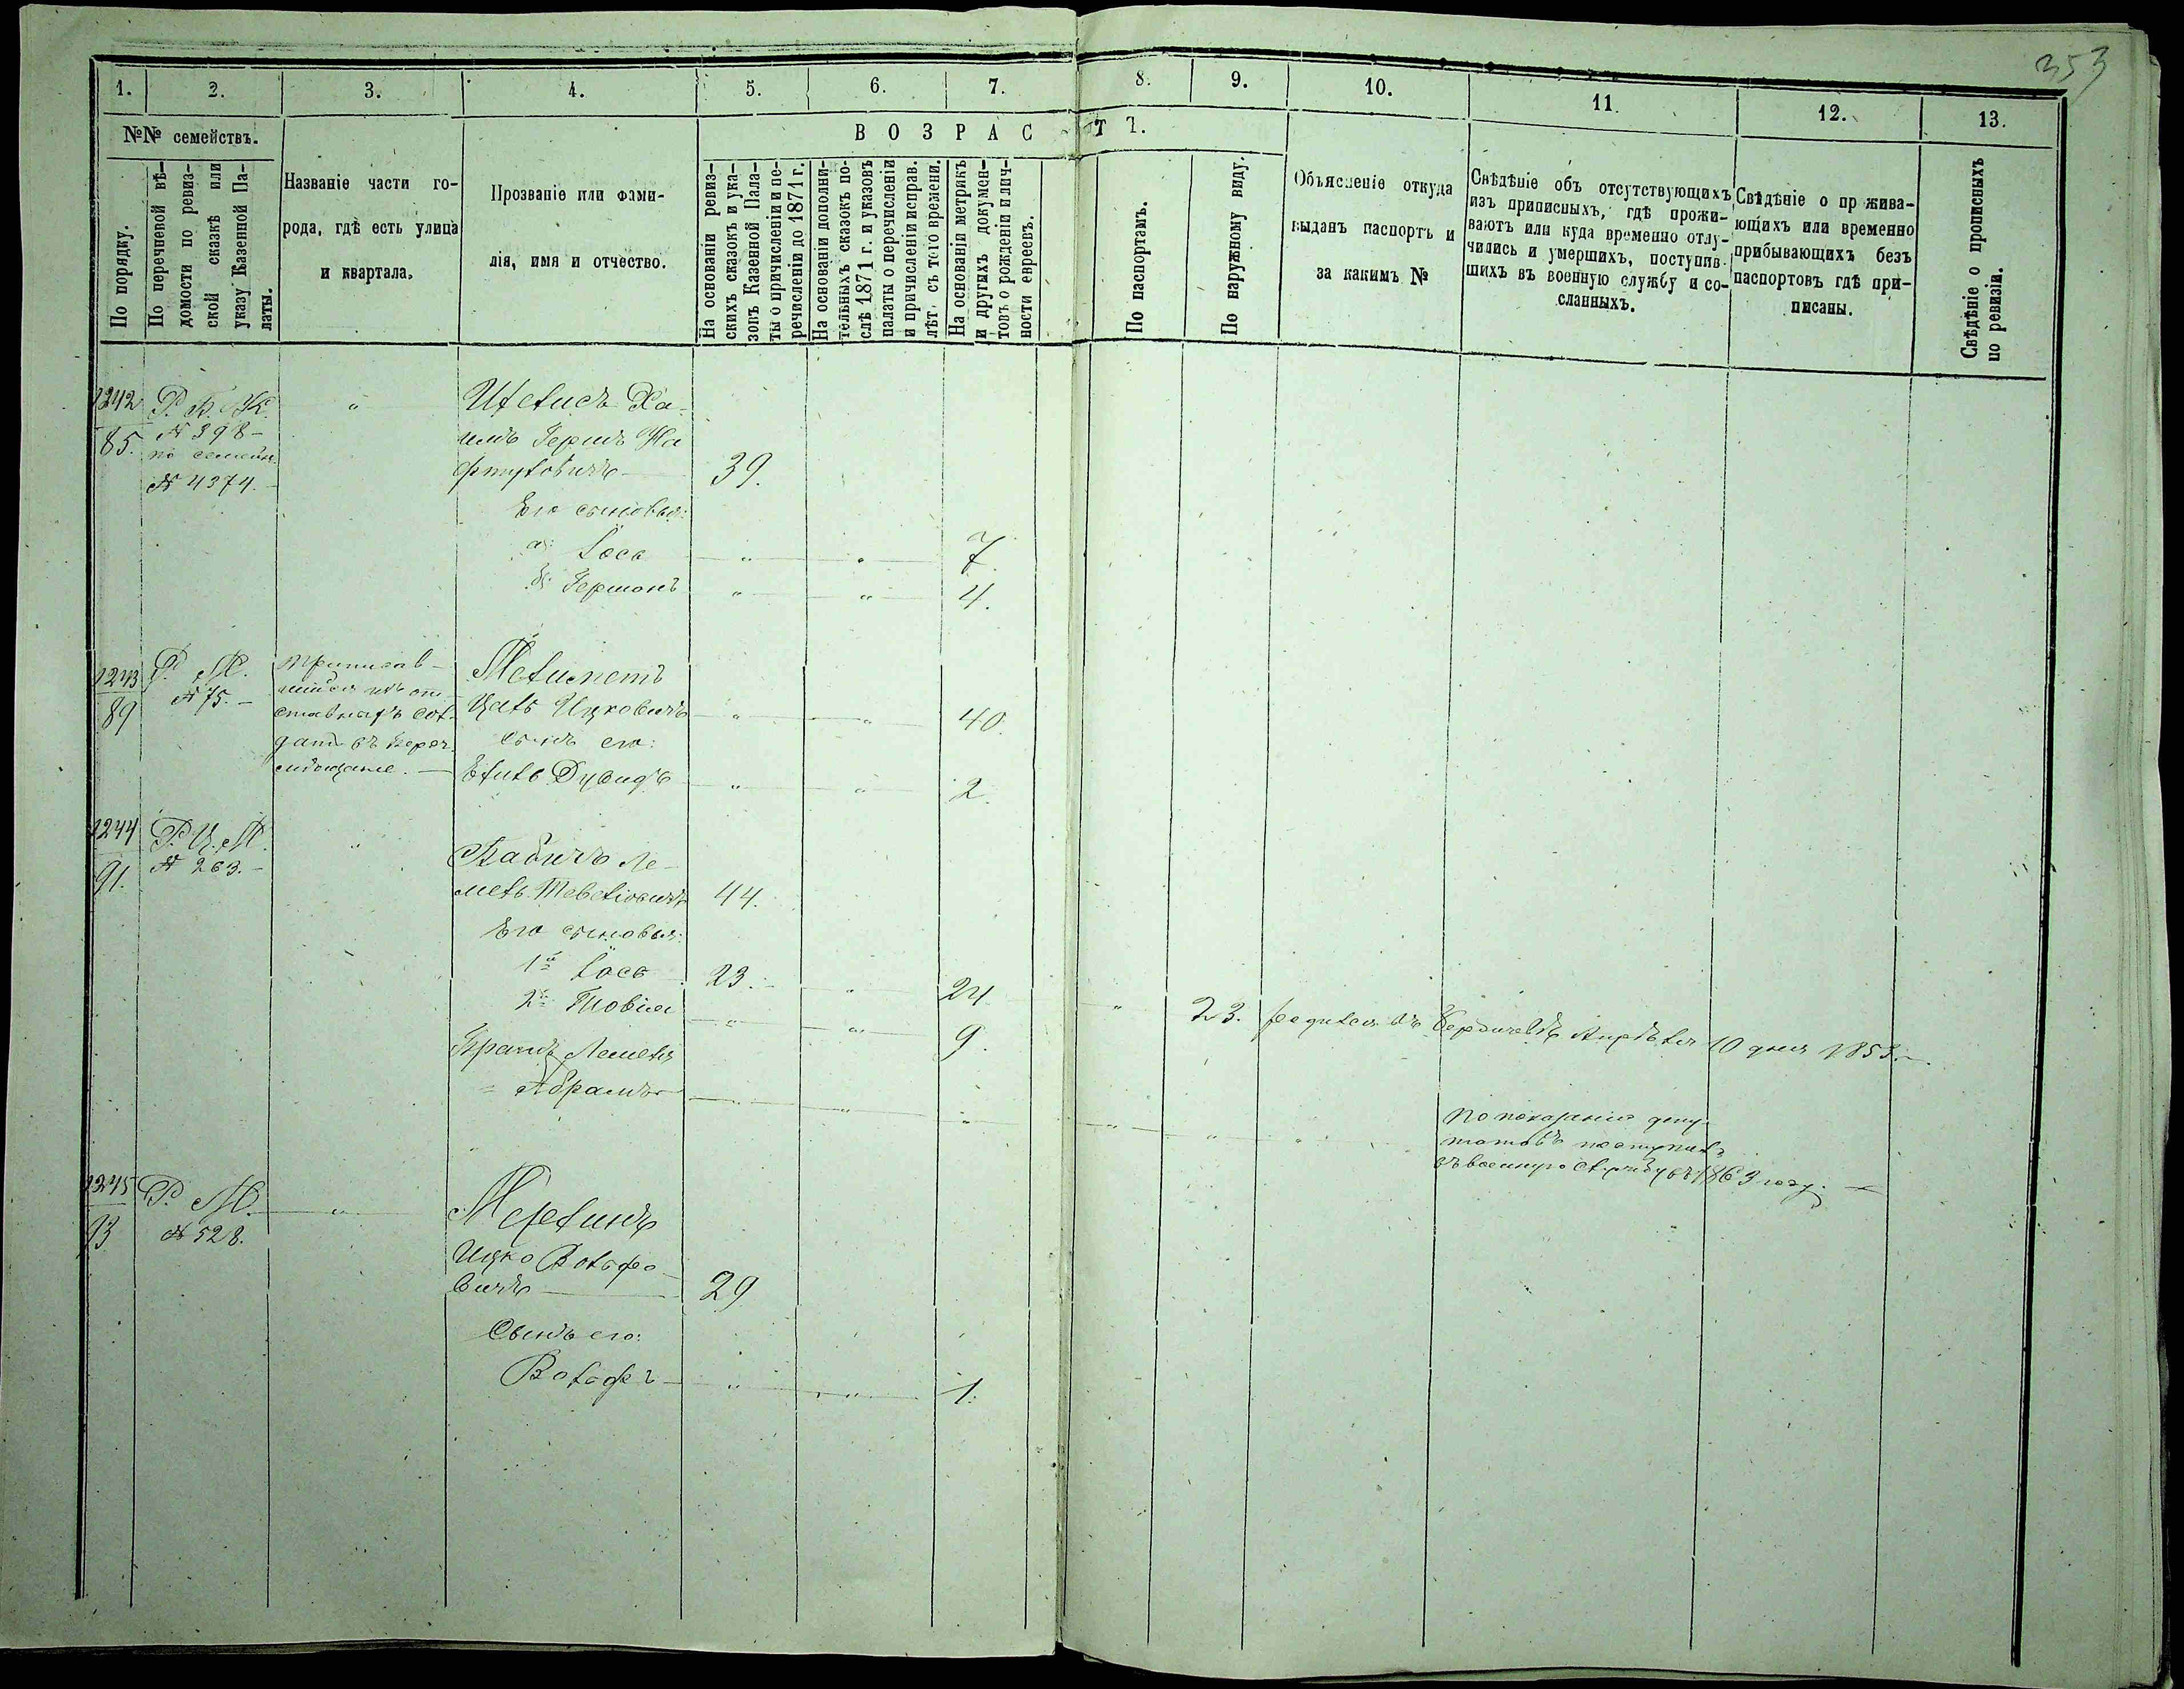 353
1. 2. 3. 4. 5. 6. 7. 8. 9. 10. 11. 12. 13.
№№ семействъ.
По порядку.
По перечневой вѣ-
домости по ревиз-
ской сказкѣ или
указу Казенной Па-
латы.
Названіе части го-
рода, гдѣ есть улица
и квартала.
Прозваніе или фами-
лія, имя и отчество.
ВОЗРАСТЪ.
На основаніи ревиз-
скихъ сказокъ и ука-
зовъ Казенной Пала-
ты о причисленіи и пе-
речисленіи до 1871 г.
На основаніи дополни-
тельныхъ сказокъ по-
слѣ 1871 г. и указовъ
палаты о перечисленіи
и причисленіи исправ.
лѣт. съ того времени.
На основаніи метрикъ
и другихъ докумен-
товъ о рожденіи и лич-
ности евреевъ.
По паспортамъ.
По наружному виду.
Объясненіе откуда
выданъ паспортъ и
за какимъ №
Свѣдѣніе объ отсутствующихъ
изъ приписныхъ, гдѣ прожи-
ваютъ или куда временно отлу-
чились и умершихъ, поступив-
шихъ въ военную службу и со-
сланныхъ.
Свѣдѣніе о прожива-
ющихъ или временно
прибывающихъ безъ
паспортовъ гдѣ при-
писаны.
Свѣдѣніе о прописныхъ
по ревизіи.
1242
85.
Р. Б.
№ 398 -
по семейн.
№ 4374. -
Ха-
имъ Гершъ На
фтуловичъ 39.
Его сыновья:
а) Іось " " 7.
б) Гершонъ " " 4.
1243
89
Р. М.
№ 75. -
Приписав-
шійся изъ от-
ставныхъ сол-
датъ
Ицковичъ " " 40.
Сынъ его:
Дувидъ " " 2.
1244
91.
Р. Ц. М.
№ 263. -
"
Бабичъ Ле-
мель Тевеліовичъ 44.
Его сыновья:
1й Іось 23. " 24 " 23. родился въ Бердичевѣ Апрѣля 10 дня 1853.
2й Товія " " 9.
Братъ Лемеля
Абрамъ " " " " " "
По показанію депу-
татовъ поступилъ
въ военную службу въ 1863 году.
1245
93
Р. М.
№ 528.
"
Мезелинъ
Ицко Вольфо-
вичъ 29
Сынъ его:
Вольфъ " " 1.